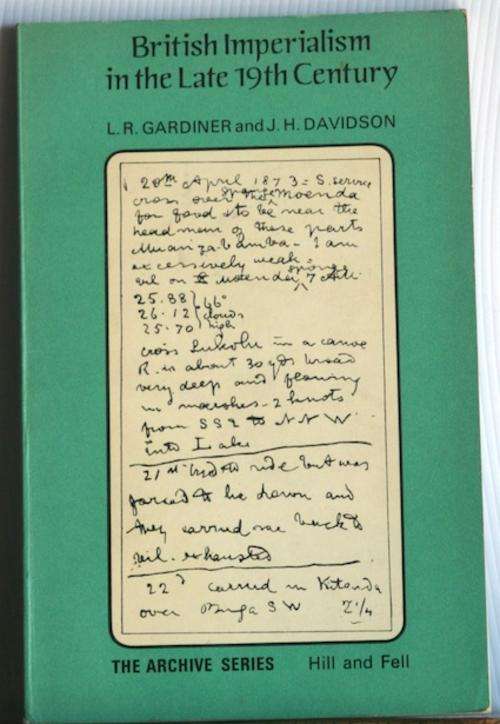 British Imperialism
in the Late 19th Century
L. R. GARDINER and J. H. DAVIDSON
20th April 1873 = S. service
cross over the sponge Moenda
for food & to be near the
headman of these parts
Moanzabamba - I am
excessively weak =
vil on Moenda sponge 7 AM.
25.88 66°
26.12 clouds
25.70 high
cross Lokolu in a canoe
R. is about 30 yds broad
very deep and flowing
in marshes - 2 knots
from SSE to NNW
into Lake
21st tried to ride but was
forced to lie down and
they carried me back to
vil. exhausted
22d carried in Kitanda
over Buga S W 2 1/4
THE ARCHIVE SERIES Hill and Fell